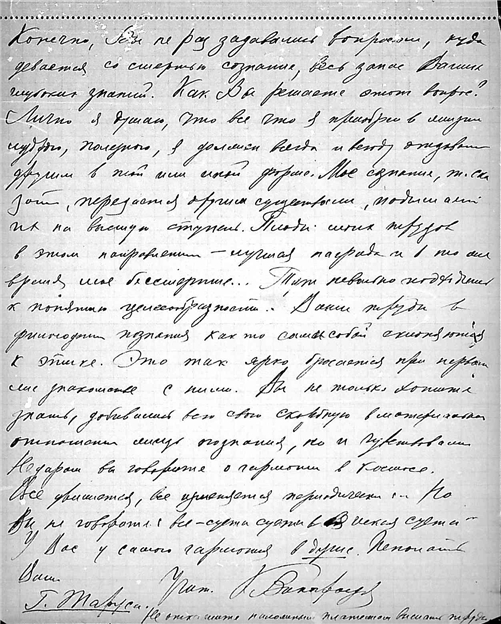 Конечно, Вы не раз задавались вопросом, куда
девается со смертью сознание, весь запас Ваших
глубоких знаний. Как Вы решаете этот вопрос?
Лично я думаю, что все что я приобрел в жизни
мудрого, полезного, я должен всегда и всюду отдавать
другим в той или иной форме. Мое сознание, т. ск
зать, передается другим существам, подымает
их на высшую ступень. Плоды моих трудов
в этом направлении – лучшая награда и в то же
время мое бессмертие... Тут невольно подходишь
к понятию целесообразности! Ваши труды в
философии познания как то сами собой склоняются
к этике. Это так ярко бросается при первом
же знакомстве с ними. Вы не только хотите
знать, добиваясь всю свою скорбную в материальном
отношении жизнь познания, но и чувствовали
Недаром вы говорите о гармонии в космосе.
Все движется, все изменяется периодически... Но
Вы не говорите: все – суета сует и всяческая суета –
У Вас у самого гармония в душе.
Ваш
Г. Таруса. Учит.
Не откажите наложенным платежом выслать труды